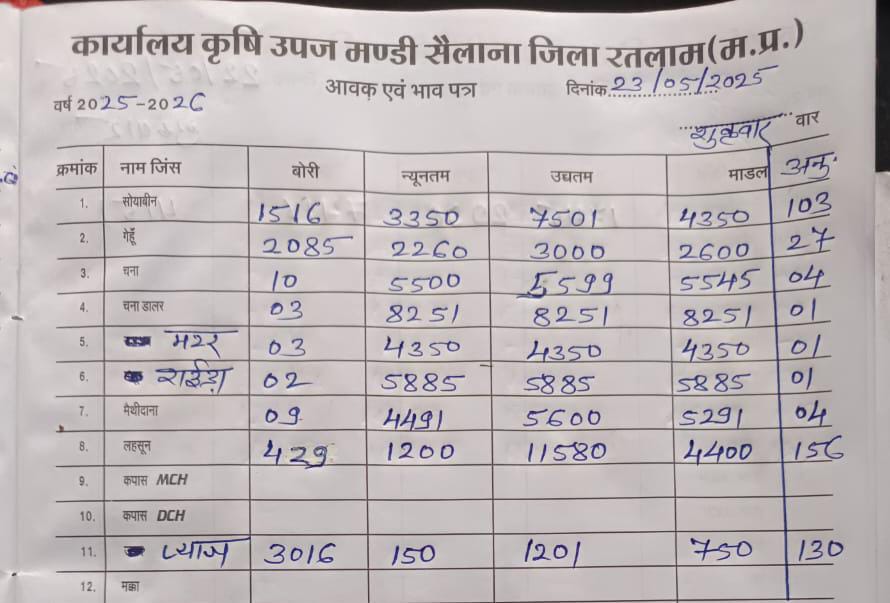 कार्यालय कृषि उपज मण्डी सैलाना जिला रतलाम(म.प्र.)
आवक एवं भाव पत्र
वर्ष 2025-2026 दिनांक 23/05/2025
शुक्रवार वार
क्रमांक नाम जिंस बोरी न्यूनतम उच्चतम माडल अनु.
1. सोयाबीन 1516 3350 7501 4350 103
2. गेहूँ 2085 2260 3000 2600 27
3. चना 10 5500 5599 5545 04
4. चना डालर 03 8251 8251 8251 01
5. मटर 03 4350 4350 4350 01
6. राईड़ा 02 5885 5885 5885 01
7. मैथीदाना 09 4491 5600 5291 04
8. लहसून 429 1200 11580 4400 156
9. कपास MCH
10. कपास DCH
11. प्याज 3016 150 1201 750 130
12. मक्का